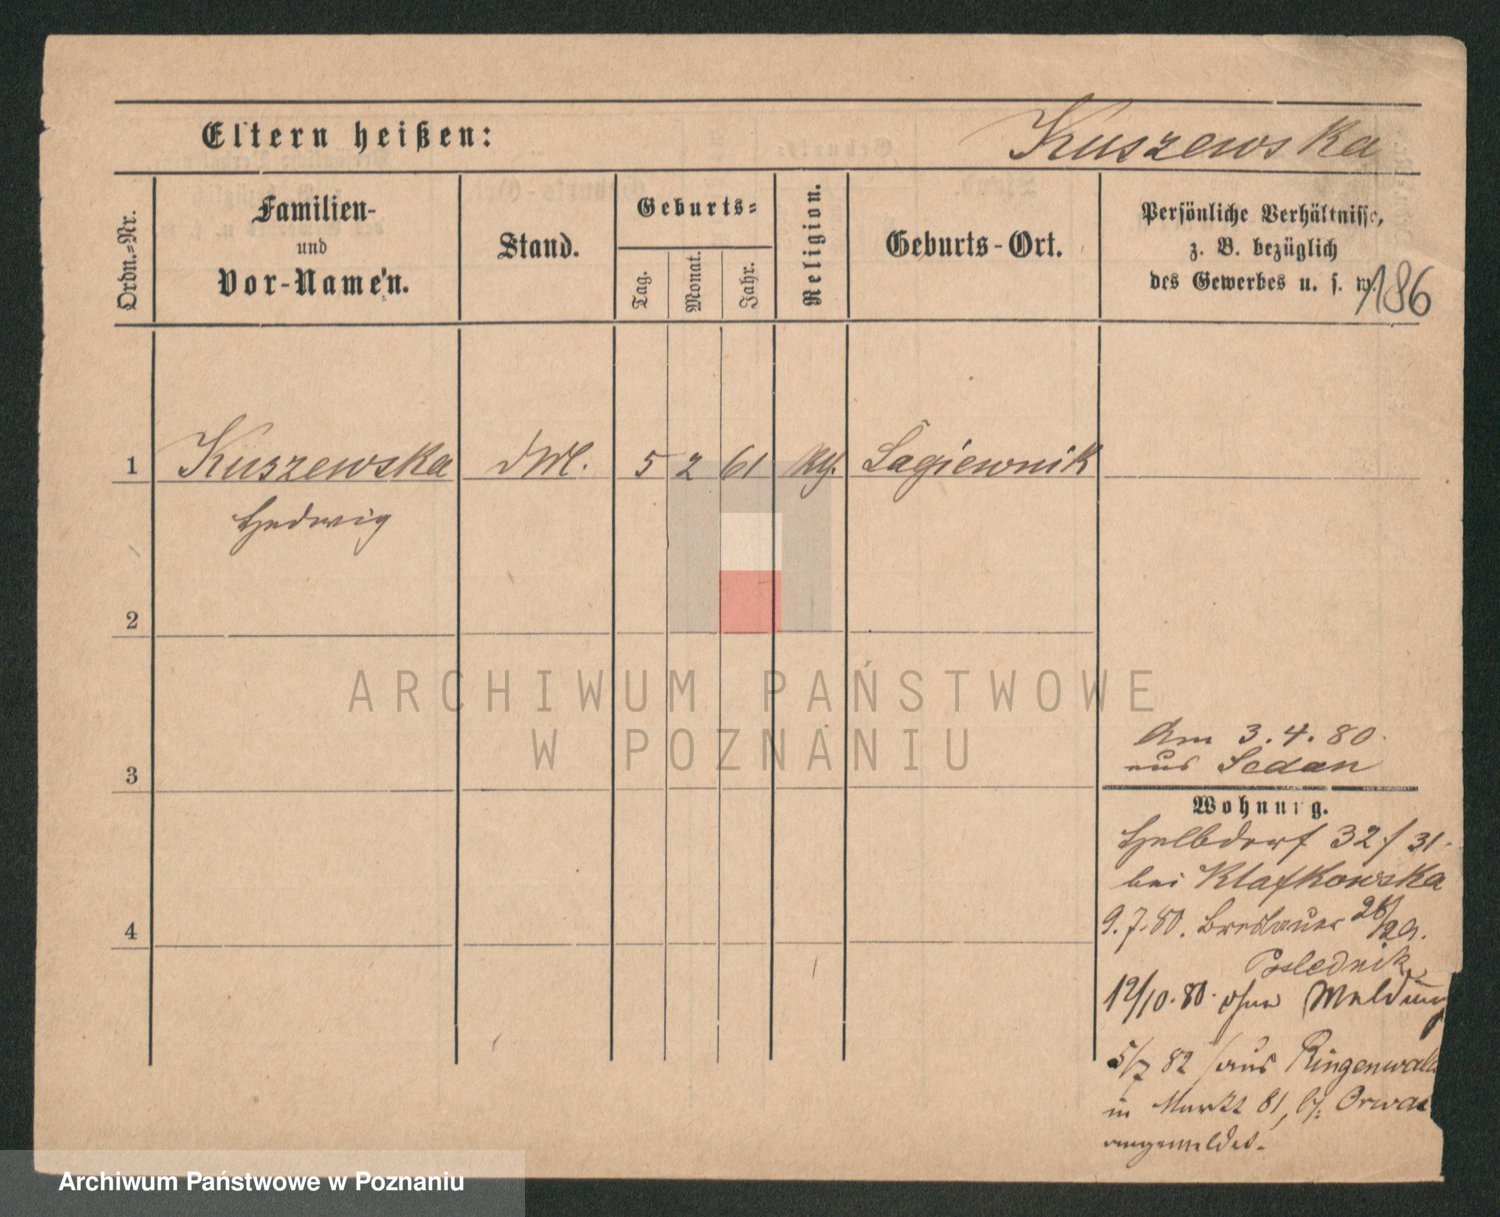 Eltern heißen:
Kuszewska
Ordn.-Nr.
Familien-
und
Vor-Namen.
Stand.
Geburts-
Tag.
Monat.
Jahr.
Religion.
Geburts-Ort.
Persönliche Verhältnisse,
z. B. bezüglich
des Gewerbes u. s. w.
186
1 Kuszewska 5 2 61 Łagiewnik
Hedwig
2
3
4
ARCHIWUM PAŃSTWOWE
W POZNANIU
Am 3.4.80.
aus Sedan
Wohnung.
Halbdorf 32/31.
bei Klafkowska
9.7.80. Breslauer 28/29.
Poslednik
12/10.80. ohne Meldung
5/7 82 aus Ringenwald
in Markt 81, b/.
angemeldet.
Archiwum Państwowe w Poznaniu